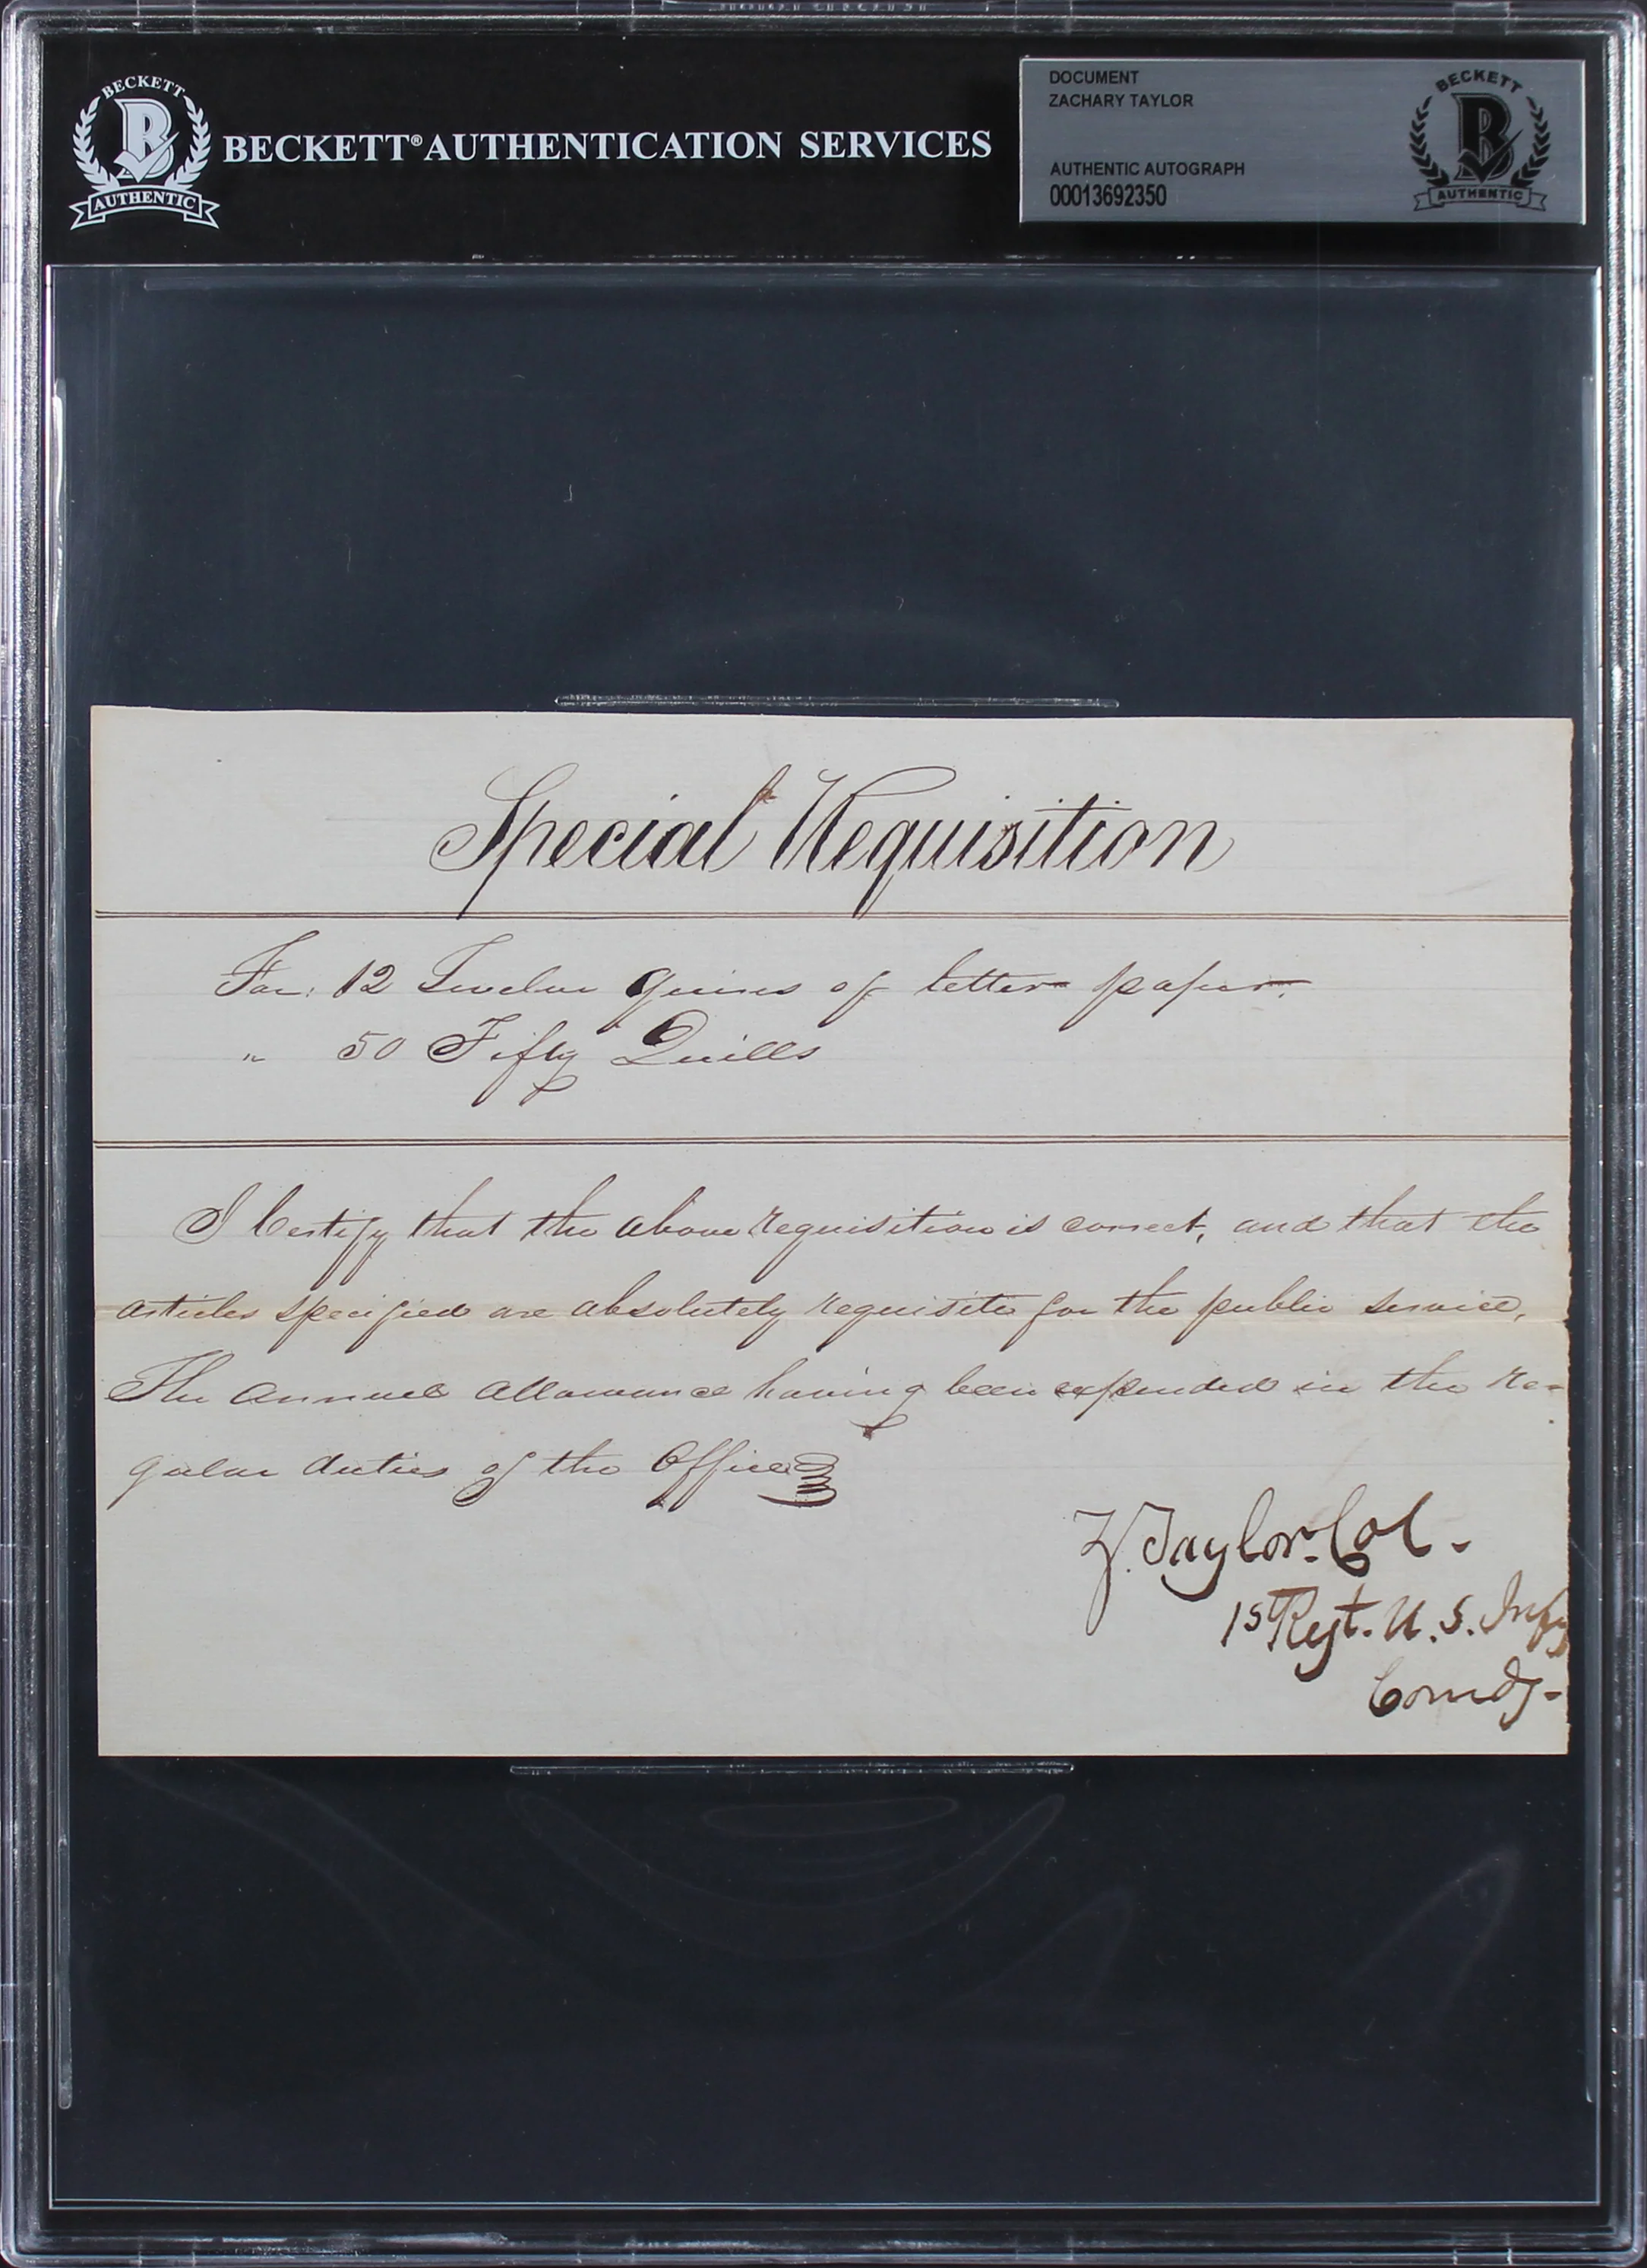 BECKETT
B
AUTHENTIC
BECKETT® AUTHENTICATION SERVICES
DOCUMENT
ZACHARY TAYLOR
AUTHENTIC AUTOGRAPH
00013692350
BECKETT
B
AUTHENTIC
Special Requisition
For: 12 Twelve Quires of letter paper.
" 50 Fifty Quills
I Certify that the above requisition is correct, and that the
articles specified are absolutely requisite for the public service,
The Annual Allowance having been expended in the re-
gular duties of the Office
Z. Taylor. Col.
1st Regt. U. S. Infy
Comdg-